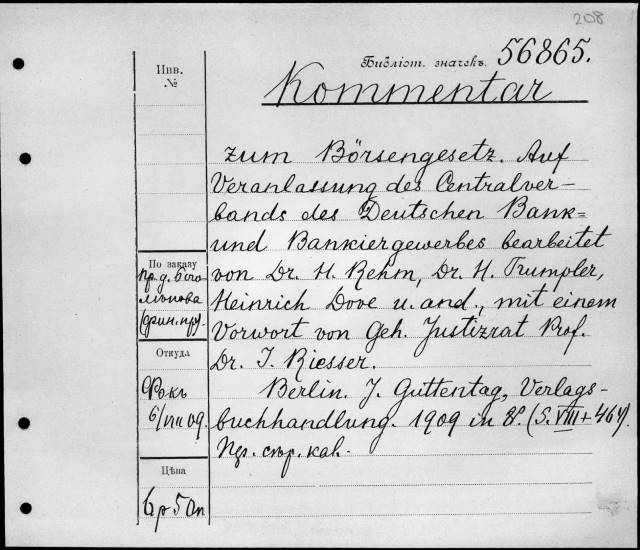 208
Библіот. значекъ. 56865.
Инв.
№
Kommentar
zum Börsengesetz. Auf
Veranlassung des Centralver-
bands des Deutschen Bank=
und Bankiergewerbes bearbeitet
von Dr. H. Rehm, Dr. H. Trumpler,
Heinrich Dove u. and., mit einem
Vorwort von Geh. Justizrat Prof.
Dr. J. Riesser.
Berlin. J. Guttentag, Verlags-
buchhandlung. 1909 in 8°. (S. VIII + 464).
кал.
По заказу
пр. д.
Откуда
Фокъ
6/VIII 09.
Цѣна
6 р 50 к